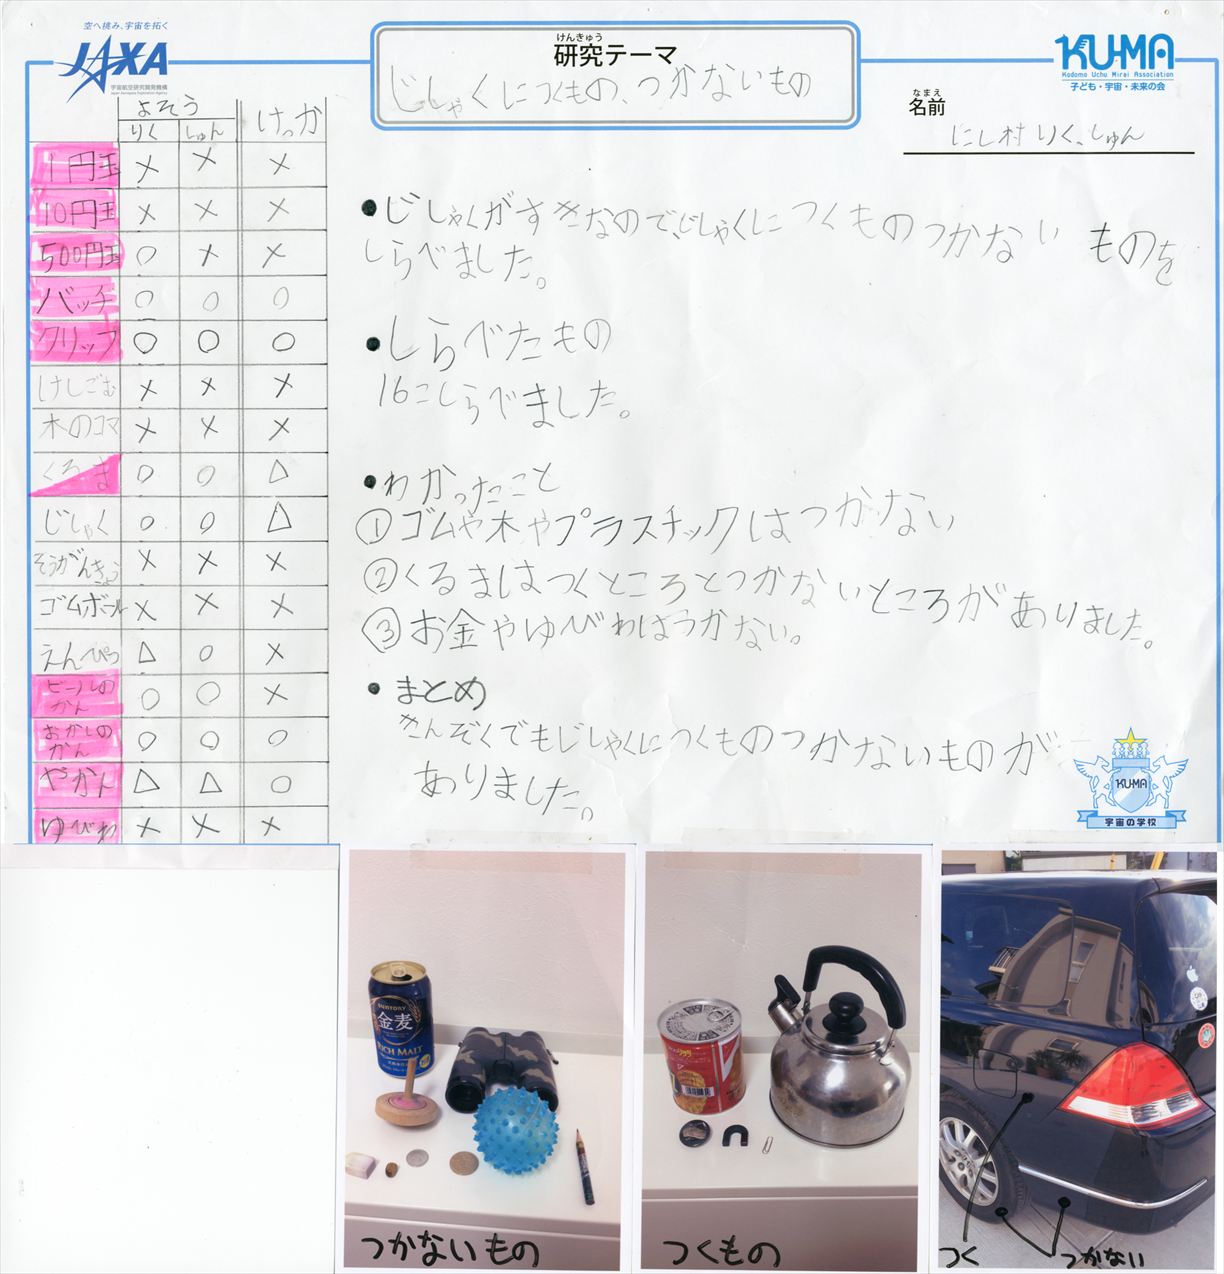 空へ挑み、宇宙を拓く
JAXA
宇宙航空研究開発機構
Japan Aerospace Exploration Agency
けんきゅう
研究テーマ
じしゃくにつくもの、つかないもの
KU-MA
Kodomo Uchu Mirai Association
子ども・宇宙・未来の会
なまえ
名前
にし村 りく、しゅん
よそう けっか
りく しゅん
1円玉 × × ×
10円玉 × × ×
500円玉 ○ × ×
バッチ ○ ○ ○
クリップ ○ ○ ○
けしごむ × × ×
木のコマ × × ×
くるま ○ ○ △
じしゃく ○ ○ △
そうがんきょう × × ×
ゴムボール × × ×
えんぴつ △ ○ ×
ビールのかん ○ ○ ×
おかしのかん ○ ○ ○
やかん △ △ ○
ゆびわ × × ×
●じしゃくがすきなので、じしゃくにつくものつかないものを
しらべました。
●しらべたもの
16こしらべました。
●わかったこと
①ゴムや木やプラスチックはつかない
②くるまはつくところとつかないところがありました。
③お金やゆびわはつかない。
●まとめ
きんぞくでもじしゃくにつくものつかないものが
ありました。
KU-MA
宇宙の学校
SUNTORY
金麦
RICH MALT
つかないもの
つくもの
つく
つかない